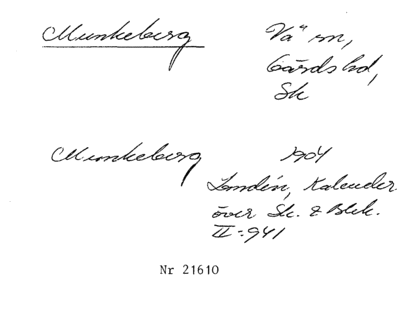 Munkeberg Vä sn,
Gärds hd,
Sk
Munkeberg 1904
Landin, Kalender
över Sk. & Blek.
II:941
Nr 21610